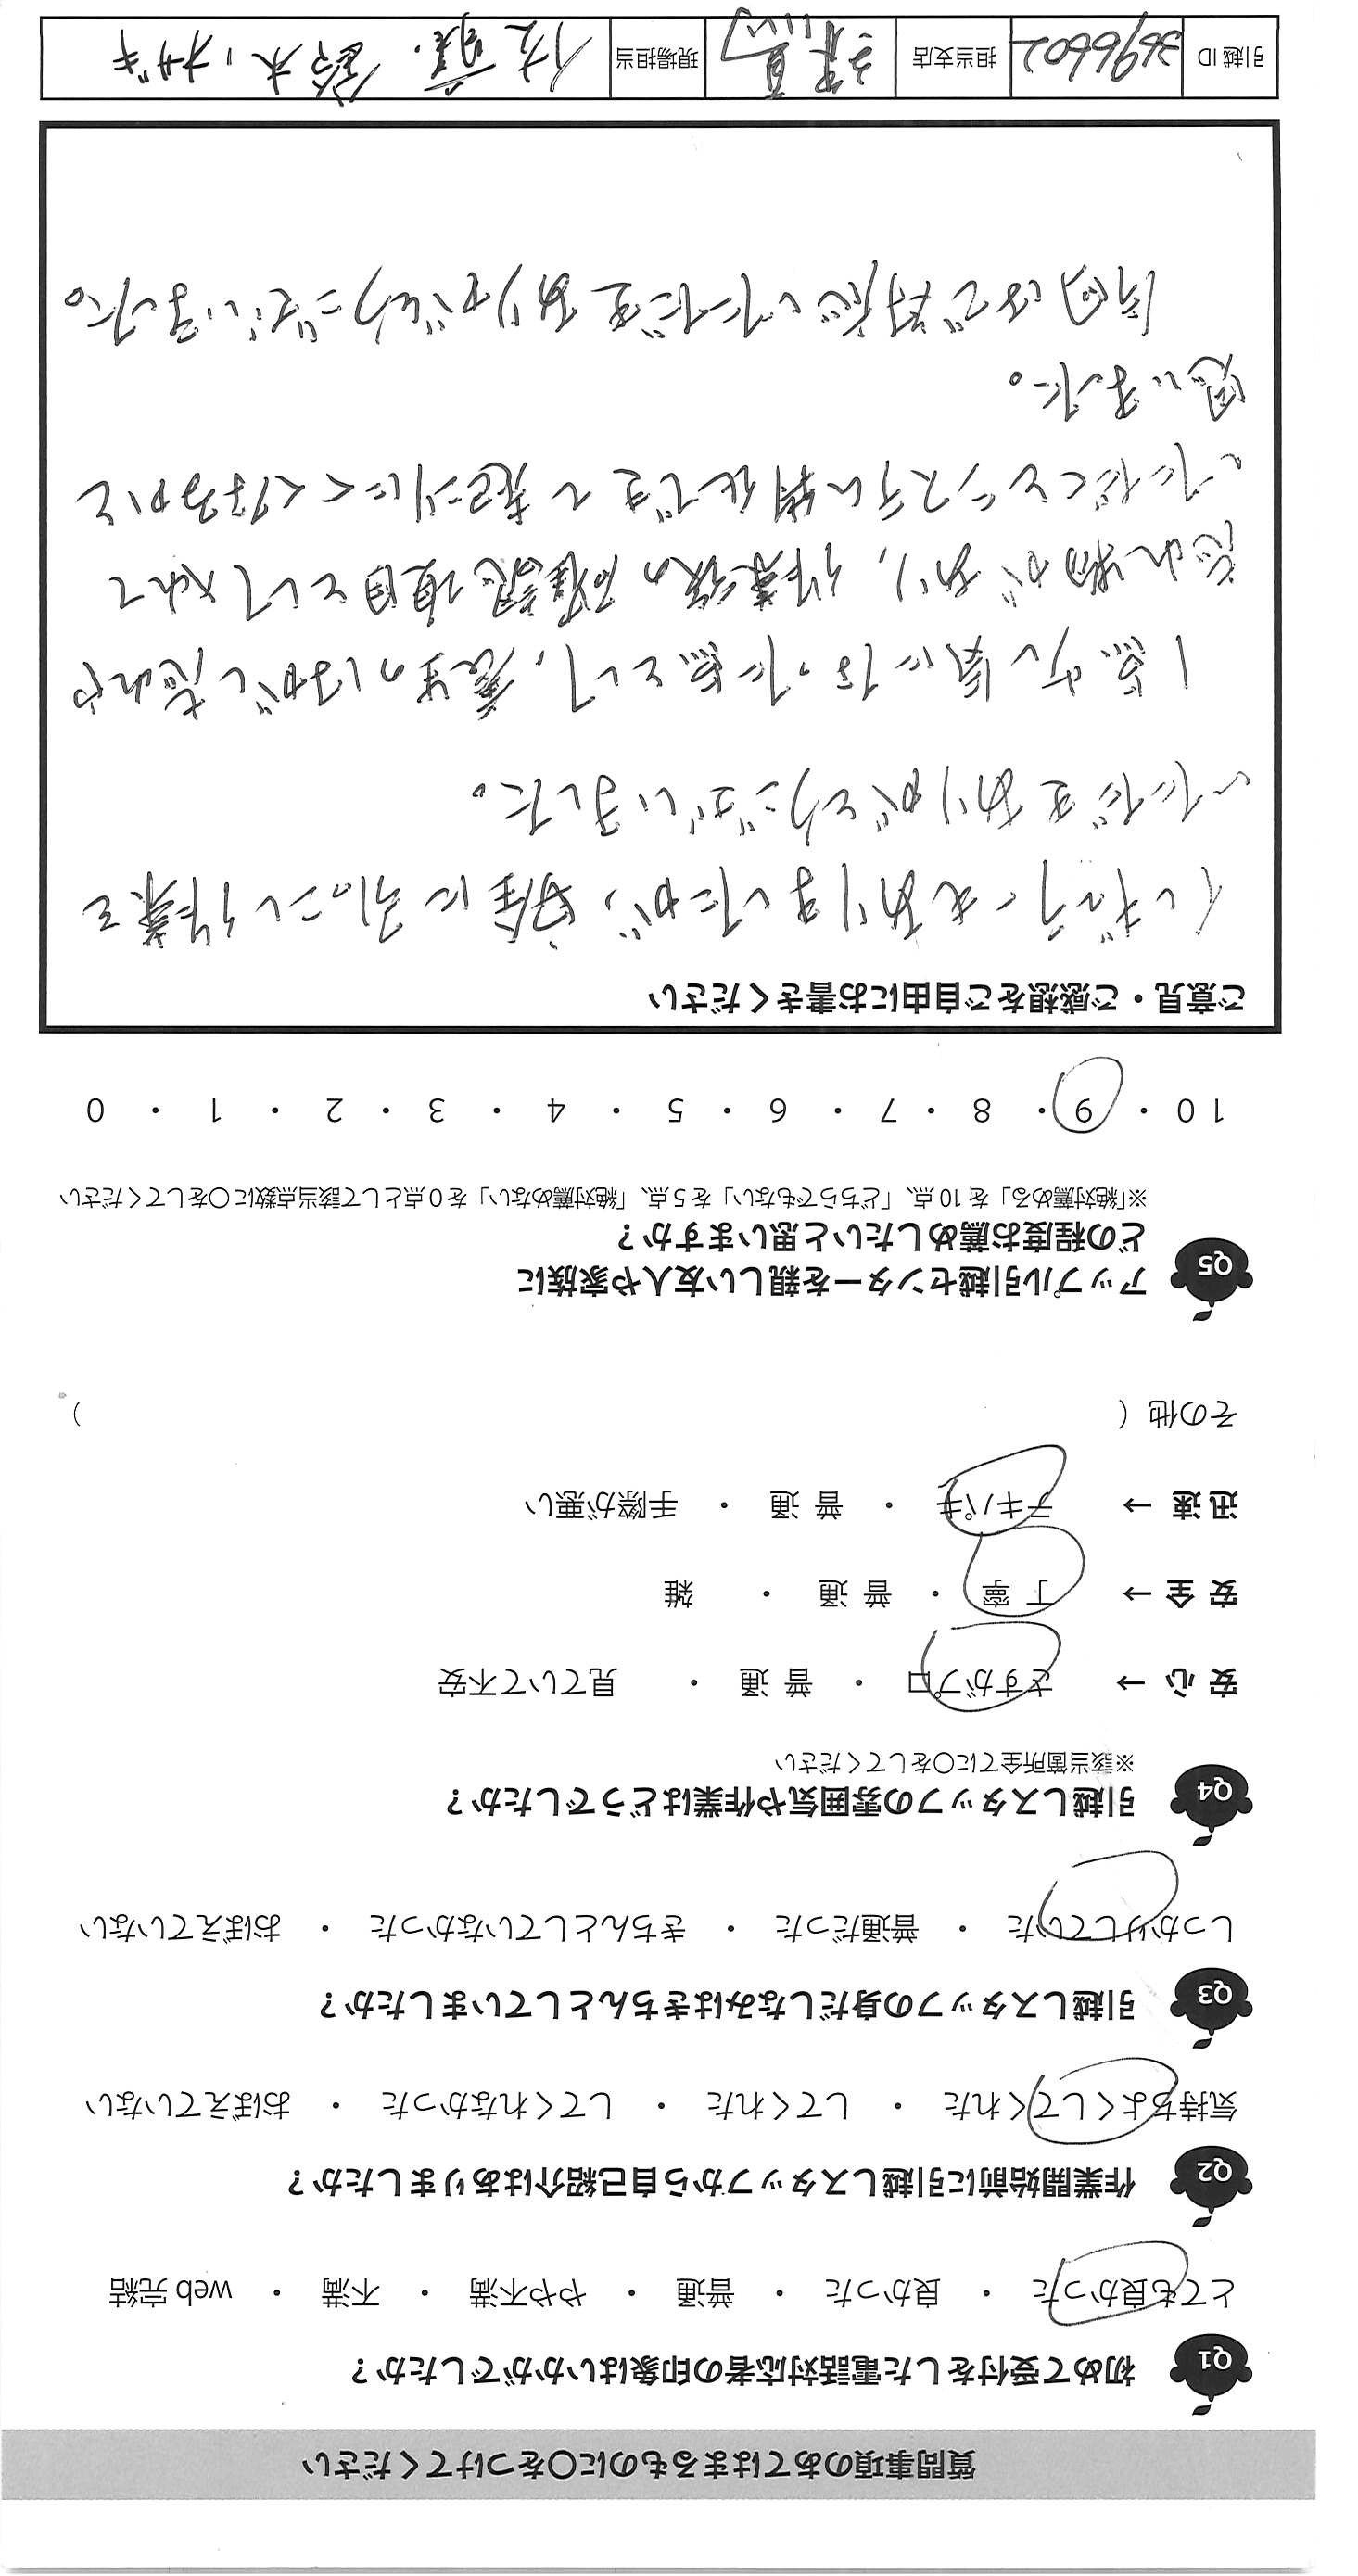 質問事項のあてはまるものに〇をつけてください
Q1 初めて受付をした電話対応者の印象はいかがでしたか？
とても良かった ・ 良かった ・ 普通 ・ やや不満 ・ 不満 ・ web 完結
Q2 作業開始前に引越しスタッフから自己紹介はありましたか？
気持ちよくしてくれた ・ してくれた ・ してくれなかった ・ おぼえていない
Q3 引越しスタッフの身だしなみはきちんとしていましたか？
しっかりしていた ・ 普通だった ・ きちんとしていなかった ・ おぼえていない
Q4 引越しスタッフの雰囲気や作業はどうでしたか？
※該当箇所全てに〇をしてください
安 心 → さすがプロ ・ 普 通 ・ 見ていて不安
安 全 → 丁 寧 ・ 普 通 ・ 雑
迅 速 → テキパキ ・ 普 通 ・ 手際が悪い
その他（ ）
Q5 アップル引越センターを親しい友人や家族に
どの程度お薦めしたいと思いますか？
※「絶対薦める」を 10 点、「どちらでもない」を 5 点、「絶対薦めない」を 0 点として該当点数に〇をしてください
10 ・ 9 ・ 8 ・ 7 ・ 6 ・ 5 ・ 4 ・ 3 ・ 2 ・ 1 ・ 0
ご意見・ご感想をご自由にお書きください
イレギュラーもありましたが、安全に引っこし作業を
いただきありがとうございました。
1点だけ気になった点として、養生のはがし忘れや
忘れ物があり、作業後の確認項目として入れて
いただくとシステム構化できて起こりにくくなるかと
思いました。
今回はご対応いただきありがとうございました。
引越 ID 3696602 担当支店 練馬 現場担当 佐藤・鈴木・オザキ